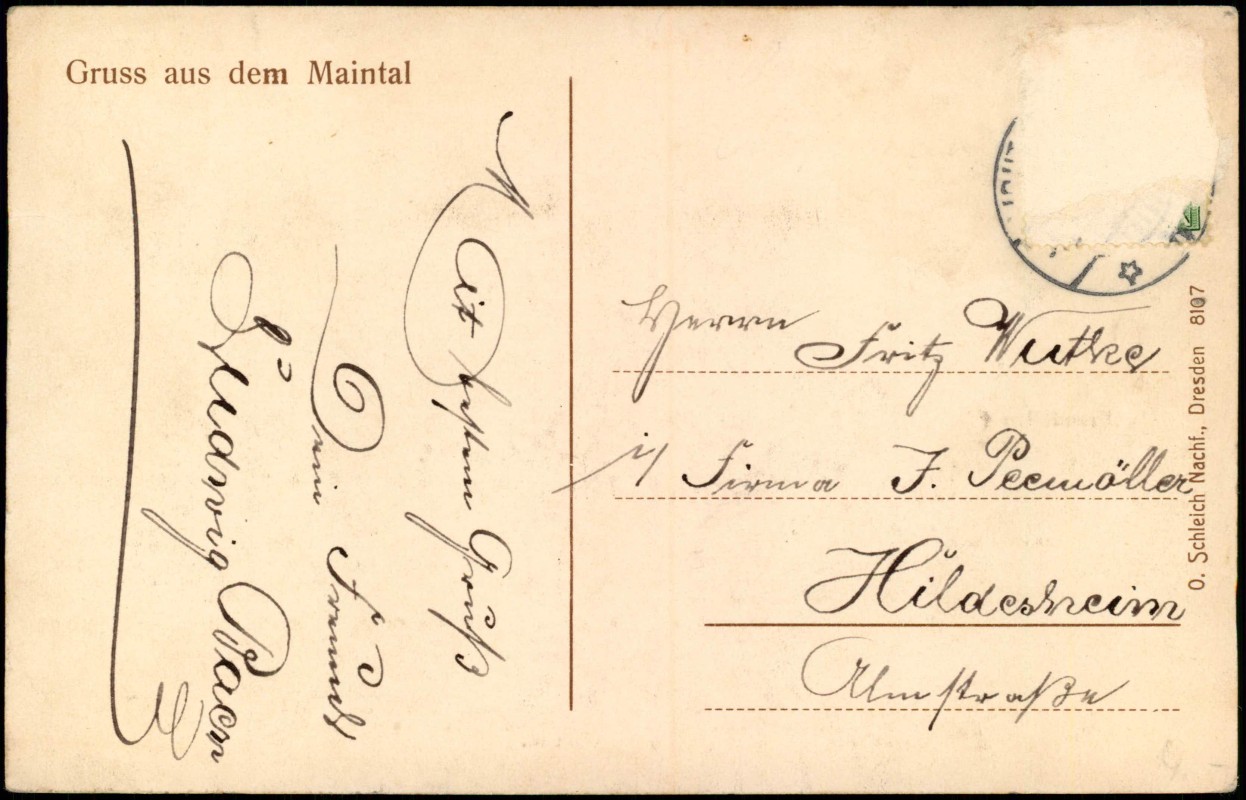 Gruss aus dem Maintal
Mit bestem Gruß
Dein Freund
Ludwig
Herrn
Fritz Wutke
i/ Firma J. Peemöller
Hildesheim
Almstraße
O. Schleich Nachf., Dresden 8107